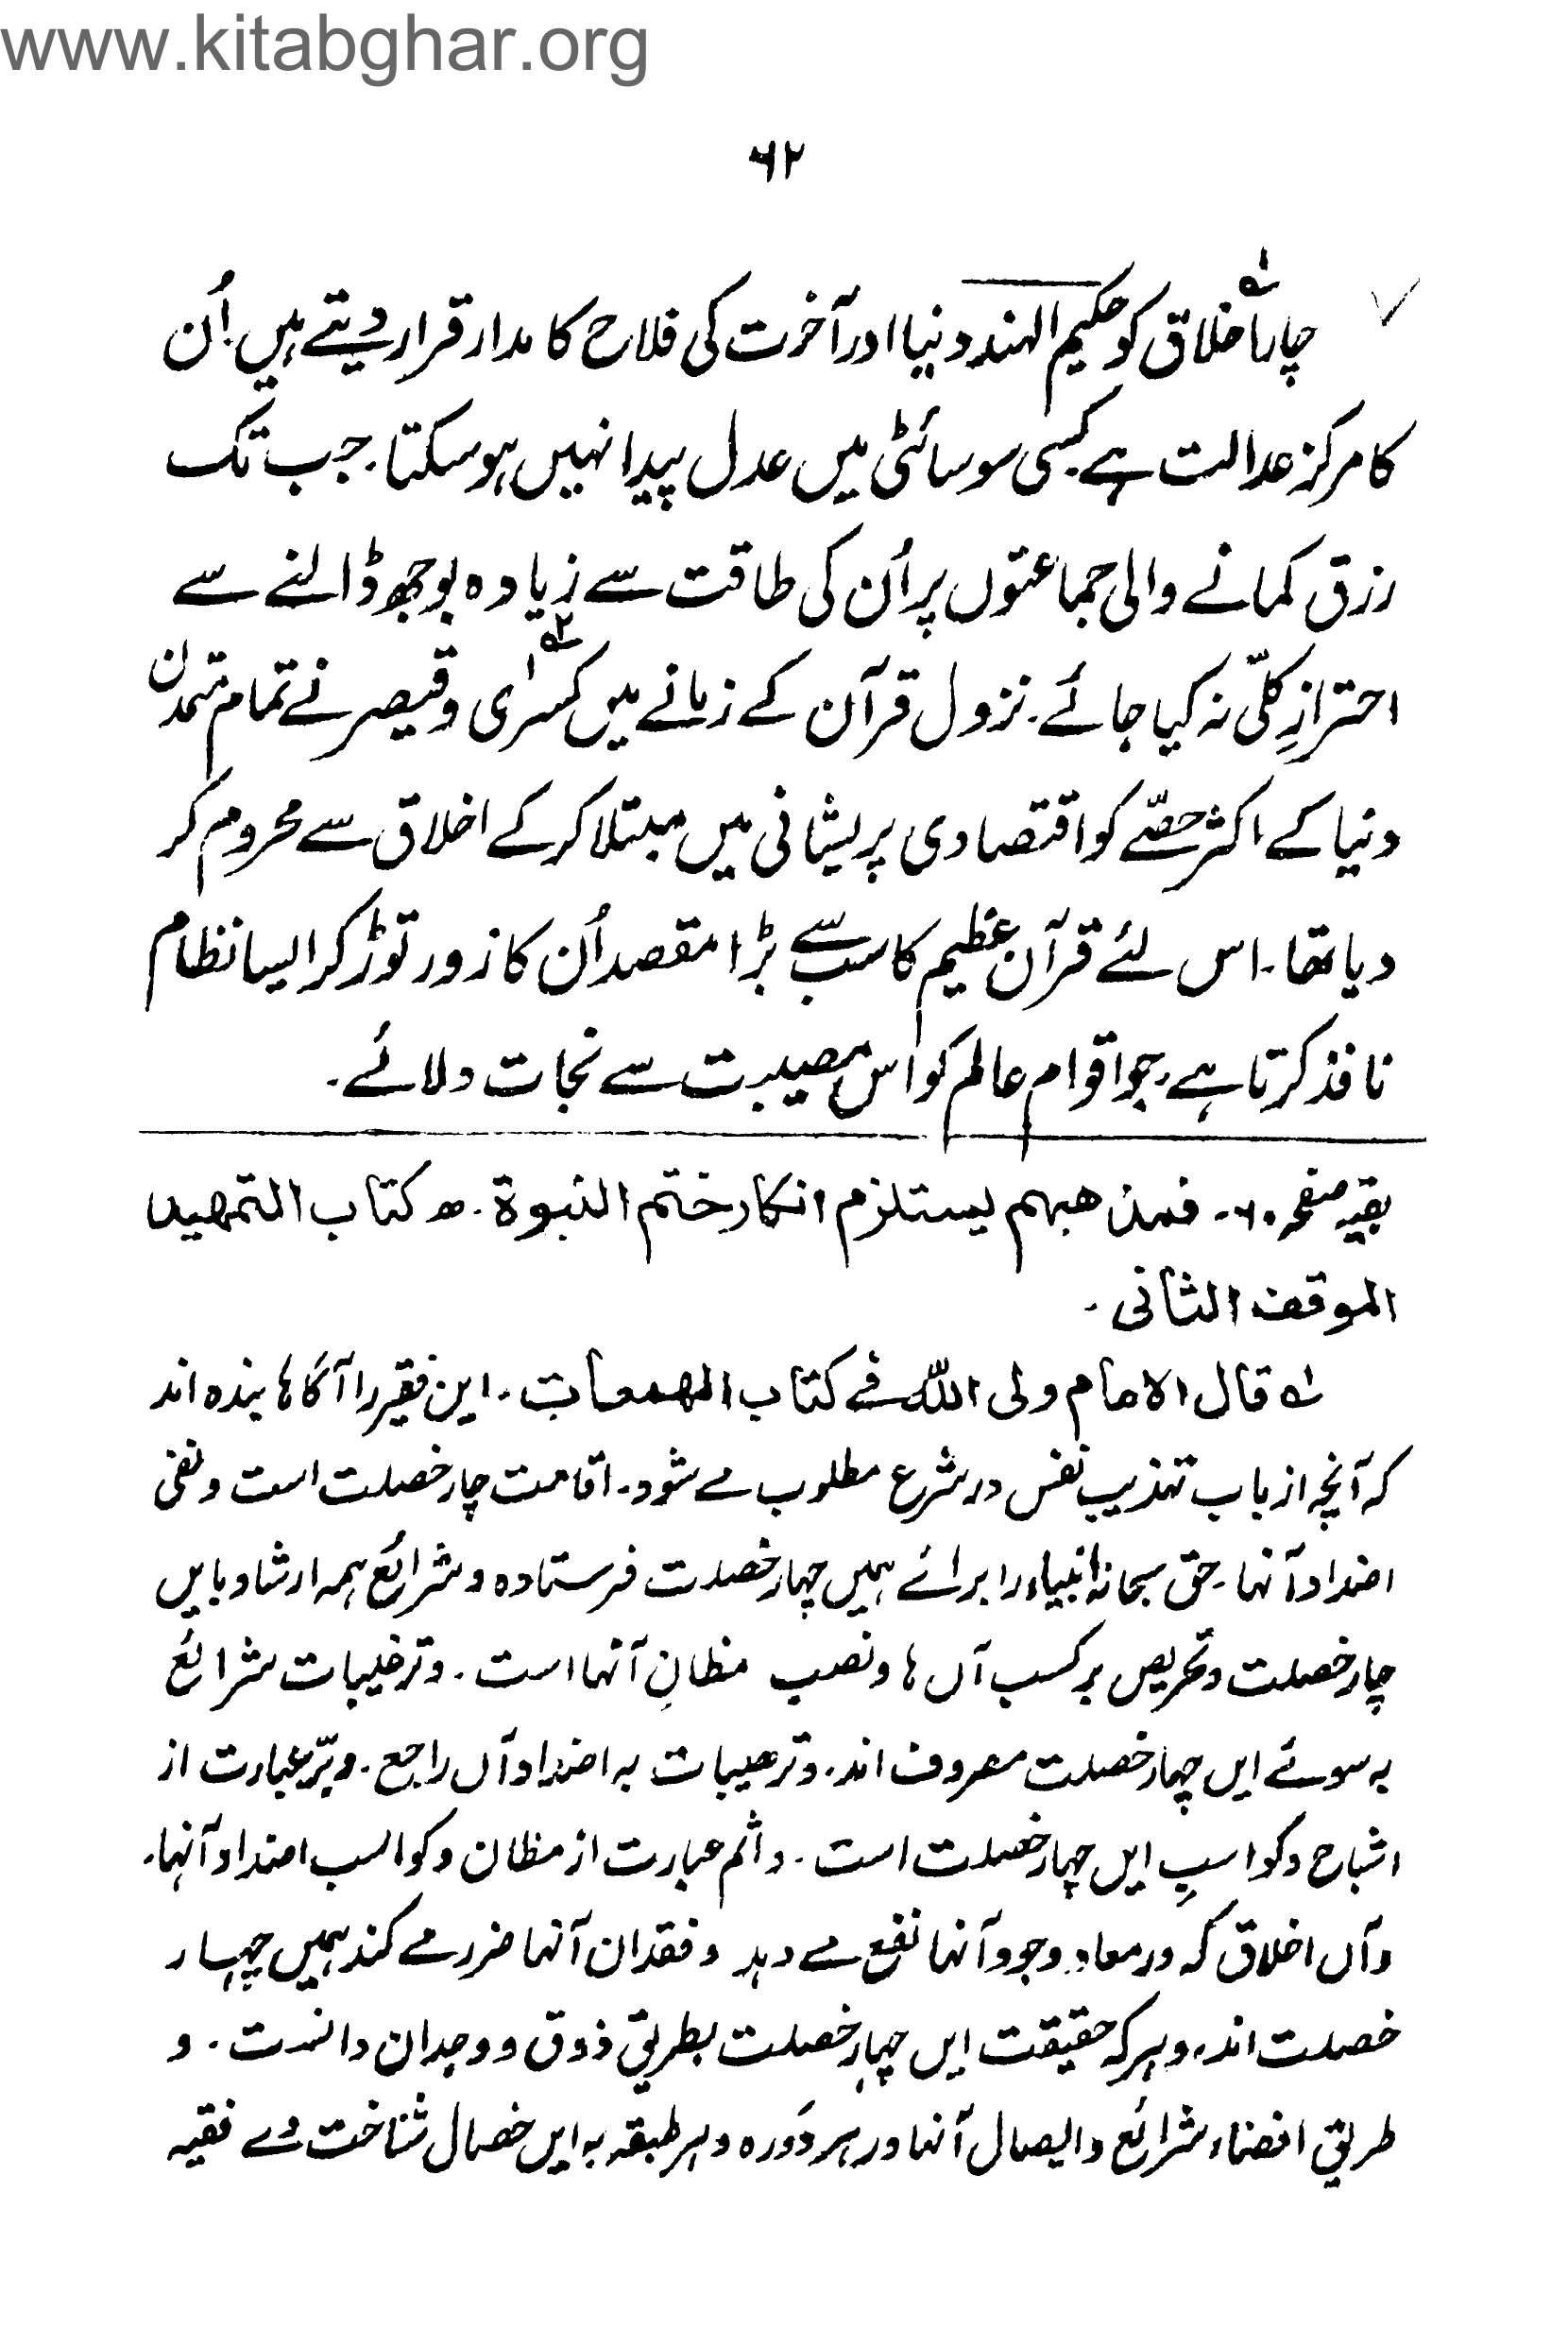 www.kitabghar.org
۶۲
چار اخلاق۱؎ کو حکیم الہند دنیا اور آخرت کی فلاح کا مدار قرار دیتے ہیں۔ اُن
کا مرکز عدالت ہے۔ کسی سوسائٹی میں عدل پیدا نہیں ہو سکتا۔ جب تک
رزق کمانے والی جماعتوں پر اُن کی طاقت سے زیادہ بوجھ ڈالنے سے
احترازِ کلّی نہ کیا جائے۔ نزول قرآن کے زمانے میں کسریٰ۲؎ و قیصر نے تمام متمدن
دنیا کے اکثر حصّے کو اقتصادی پریشانی میں مبتلا کر کے اخلاق سے محروم کر
دیا تھا۔ اس لئے قرآن عظیم کا سب سے بڑا مقصد اُن کا زور توڑ کر ایسا نظام
نافذ کرتا ہے، جو اقوام عالم کو اس مصیبت سے نجات دلائے۔
بقیہ صفحہ ۶۰۔ فمذهبهم یستلزم انکار ختم النبوة۔ ھ کتاب التمهید
الموقف الثانی۔
۱؎ قال الامام ولی اللہ فی کتاب الهمعات۔ این فقیر را آگاہانیدہ اند
کہ آنچہ از باب تہذیب نفس در شرع مطلوب مے شود۔ اقامت چار خصلت است و نفی
اضداد آنہا۔ حق سبحانہ انبیاء را برائے ہمیں چہار خصلت فرستادہ و شرائع ہمہ ارشاد بایں
چار خصلت و تحریص بر کسب آں ہا و نصب مظانِ آنہا است۔ و ترغیبات شرائع
بہ سوئے ایں چہار خصلت معروف اند۔ و ترھیبات بہ اضداد آں راجع۔ و بِرّ عبارت از
اشباح و کواسبِ ایں چہار خصلت است۔ و اثم عبارت از مظان و کواسب اضداد آنہا۔
و آں اخلاق کہ در معاد وجود آنہا نفع مے دہد و فقدان آنہا ضرر مے کند ہمیں چہار
خصلت اند۔ و ہر کہ حقیقت ایں چہار خصلت بطریق ذوق و وجدان دانست۔ و
طریق افضاء شرائع و ایصال آنہا در ہر دَورہ و ہر طبقہ بہ ایں خصال شناخت وے فقیہ